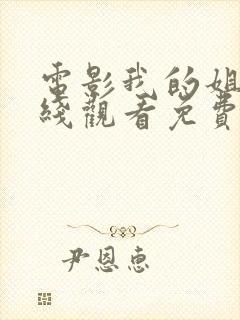 電影我的姐
綫觀看免費
尹恩惠